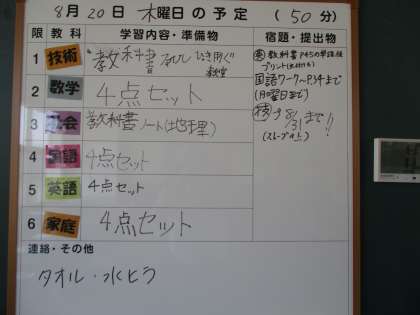 8月20日 木曜日の予定 (50分)
限 教科 学習内容・準備物 宿題・提出物
1 技術 教科書
2 数学 4点セット
3 社会 教科書 ノート(地理)
4 国語 4点セット
5 英語 4点セット
6 家庭 4点セット
英 教科書P45の単語
プリント
国語ワーク〜P.34まで
(月曜日まで)
8/31まで!!
連絡・その他
タオル・水とう